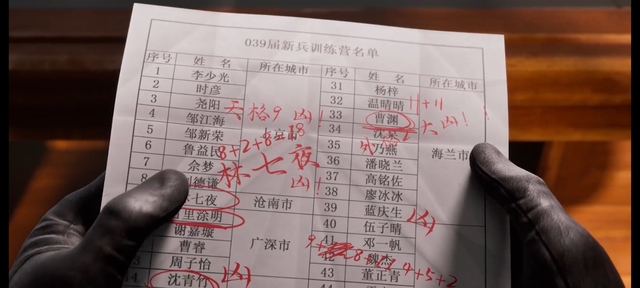 039届新兵训练营名单
序号 姓名 所在城市 序号 姓名 所在城市
1 李少光 31 杨梓
2 时彦 32 温晴晴 1+11
3 尧阳 天格9凶! 33 曹渊 大凶!!
4 邹江海 34
5 邹新荣 35 乃燕 海兰市
6 鲁益 8+2+8=18 36 潘晓兰
7 佘梦 林七夜 凶! 37 高铭佐
德谦 38 廖冰冰
七夜 沧南市 39 蓝庆生 凶
里涂明 40 伍子晴
谢嘉璇 广深市 41 邓一帆
曹睿 42 魏杰
周子怡 43 董正青 4+5+2
沈青竹 凶